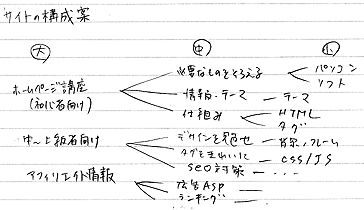 サイトの構成案
大 中 小
必要なものをそろえる パソコン
ソフト
ホームページ講座
(初心者向け)
情報・テーマ テーマ
仕組み HTML
タグ
中〜上級者向け
デザインを魅せ 背景、フレーム
タグをきれいに CSS/JS
SEO対策 ...
アフィリエイト情報
広告ASP
ランキング